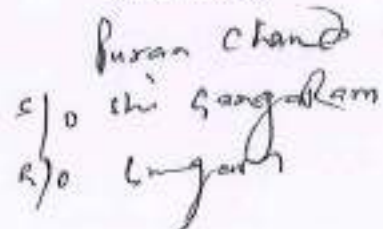 Puran Chand
S/o Shri GangaRam
R/o